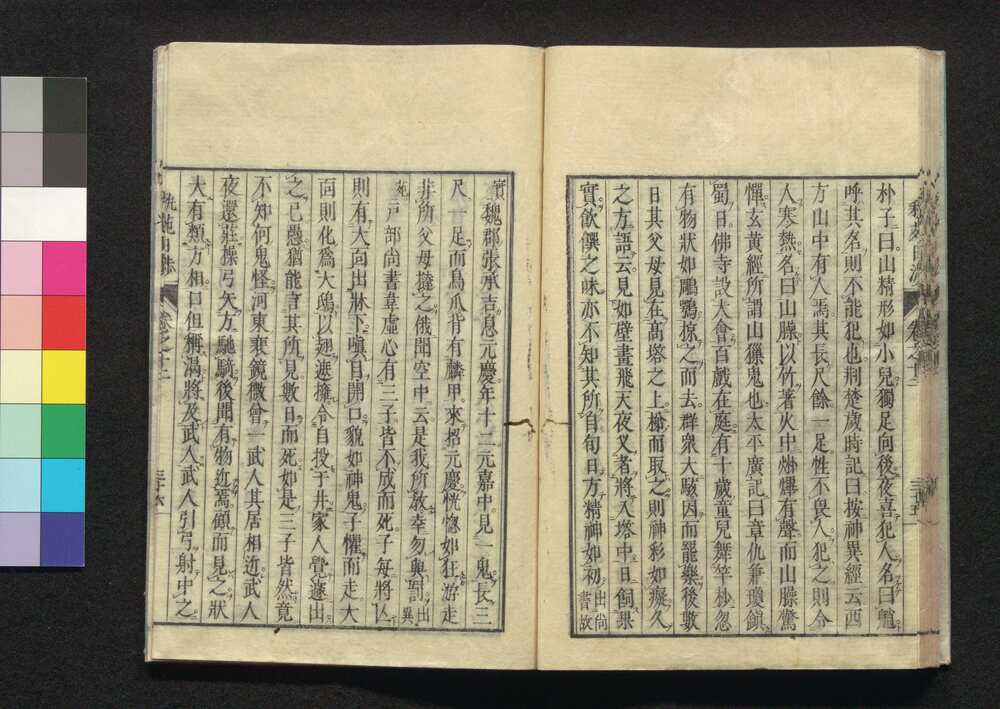 朴子曰山精形如小兒獨足向後夜喜犯人名曰魈
呼其名則不能犯也荆楚歲時記曰按神異經云西
方山中有人焉其長尺餘一足性不畏人犯之則令
人寒熱名曰山臊以竹著火中烞熚有聲而山臊驚
憚玄黃經所謂山𤢖鬼也太平廣記曰章仇兼瓊鎮
蜀日佛寺設大會百戲在庭有十歲童兒舞竿杪忽
有物狀如鵰鶚掠之而去群衆大駭因而罷樂後數
日其父母見在高塔之上梯而取之則神彩如癡久
之方語云見如壁畫飛天夜叉者將入塔中日飼果
實飲饌之味亦不知其所自旬日方精神如初 出尚書故
實 魏郡張承吉息元慶年十二元嘉中見一鬼長三
尺一足而鳥爪背有鱗甲來招元慶恍惚如狂游走
非所父母撻之俄聞空中云是我所教幸勿與罰 出異
苑 戸部尚書韋虛心有三子皆不成而死子每將亾
則有大面出牀下嗔目開口貌如神鬼子懼而走大
面則化爲大鴟以翅遮擁令自投于井家人覺遽出
之已愚猶能言其所見數日而死如是三子皆然竟
不知何鬼怪河東裴鏡微會一武人其居相近武人
夜還莊操弓矢方馳騎後聞有物近焉顧而見之狀
大有類方相口但稱渴將及武人武人引弓射中之